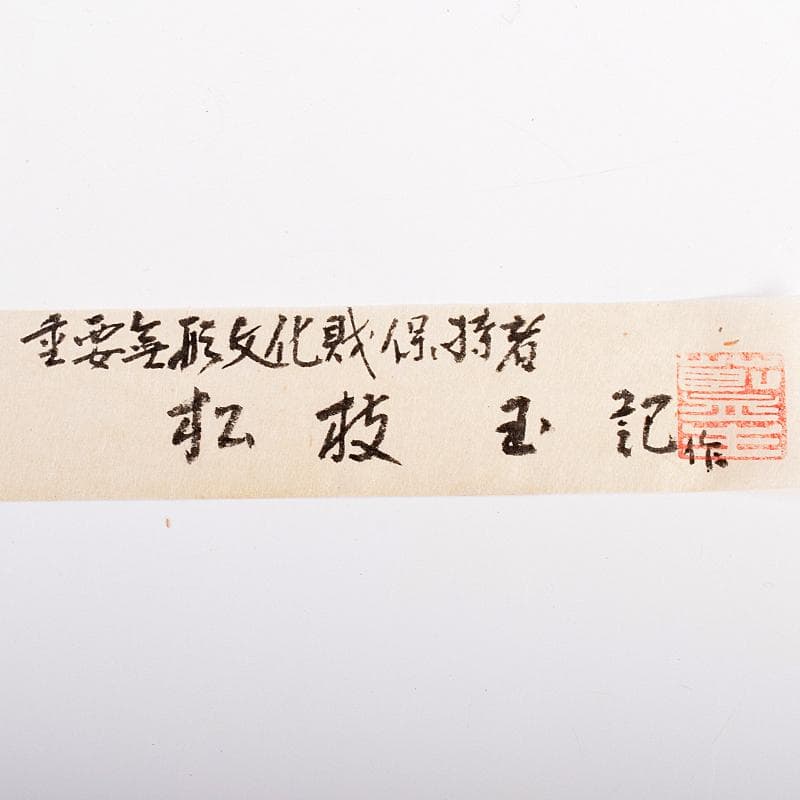 重要無形文化財保持者
松枝玉記作